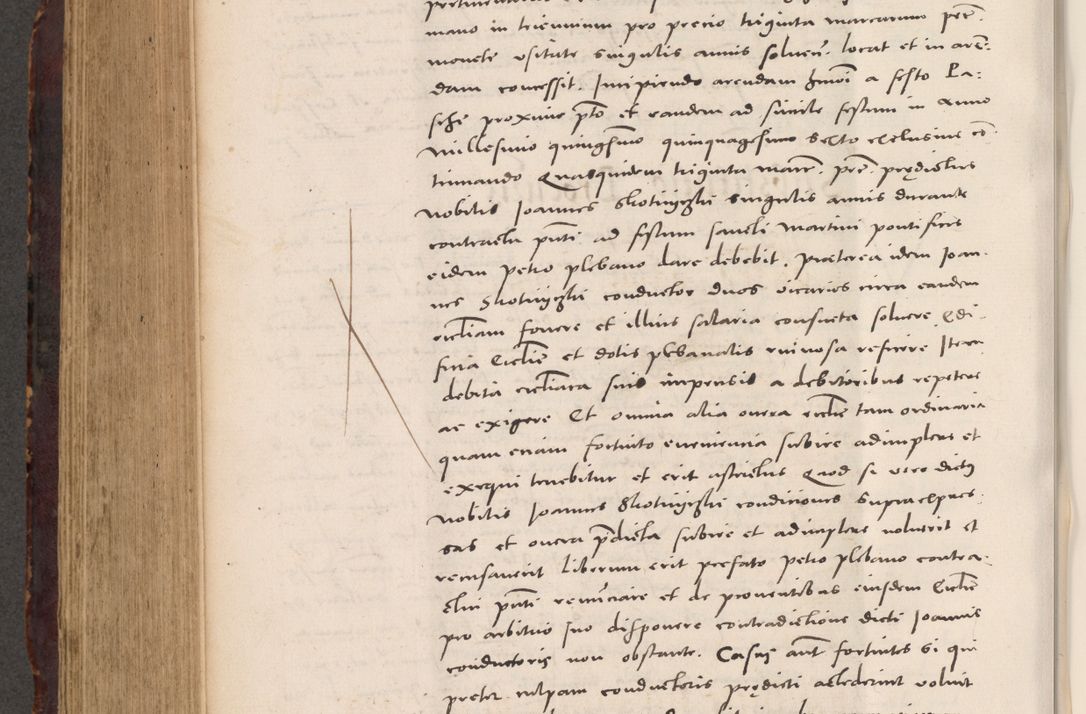 mano in triennium pro precio triginta marcarum pec̃.
monete usitate singulis annis solven̄. locat et in aren-
dam concessit. Incipiendo arendam hmōi a festo Pa-
sche proxime p̄to et eandem ad simile festum in anno
millesimo quingēsimo quinquagesimo sexto exclusive
tinuando Quasquidem triginta marc̄. pec̄. prędictus
nobilis Joannes Skotniczki singulis annis durante
contractu p̄nti ad festum sancti Martini pontificis
eidem Petro plebano dare debebit. Præterea idem Joan-
nes Skotniczki conductor duos vicarios circa eandem
eccl̄iam fovere et illius salaria consueta solvere Ędi-
ficia Eccl̄ie et dotis plebanalis ruinosa reficere Item
debita eccl̄iatica suis impensis a debitoribus repetere
ac exigere Et omnia alia onera eccl̄ie tam ordinaria
quam eciam fortuito evenientia subire adimplere et
exequi tenebitur et erit astrictus Quod si vero dictus
nobilis Joannes Skotniczki condiciones supraexpres-
sas et onera p̄dicta subire et adimplere noluerit et
recusaverit Liberum erit prefato Petro plebano contra-
ctui p̄nti renūciare et de proventibus eiusdem Eccl̄ie
pro arbitrio suo disponere contradictione dicti Joannis
conductoris non obstante. Casus aūt fortuitos si qui
preter culpam conductoris prędicti acciderint voluit